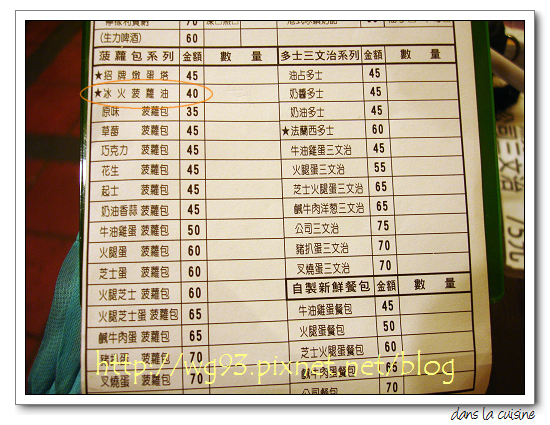 60
(生力啤酒) 60
菠蘿包系列 金額 數 量 多士三文治系列 金額 數 量
★招牌燉蛋塔 45 油占多士 45
★冰火菠蘿油 40 奶醬多士 45
原味 菠蘿包 35 奶油多士 45
草莓 菠蘿包 45 ★法蘭西多士 60
巧克力 菠蘿包 45 牛油雞蛋三文治 45
花生 菠蘿包 45 火腿蛋三文治 55
起士 菠蘿包 45 芝士火腿蛋三文治 65
奶油香蒜 菠蘿包 45 鹹牛肉洋葱三文治 65
牛油雞蛋 菠蘿包 50 公司三文治 75
火腿蛋 菠蘿包 60 豬扒蛋三文治 70
芝士蛋 菠蘿包 60 叉燒蛋三文治 70
火腿芝士 菠蘿包 60 自製新鮮餐包 金額 數 量
火腿芝士蛋 菠蘿包 65 牛油雞蛋餐包 45
鹹牛肉蛋 菠蘿包 65 火腿蛋餐包 50
豬扒蛋 菠蘿包 70 芝士火腿蛋餐包 60
叉燒蛋 菠蘿包 70 鹹牛肉蛋餐包 60
公司餐包 70
三文治
http://wg93.pixnet.net/blog
dans la cuisine